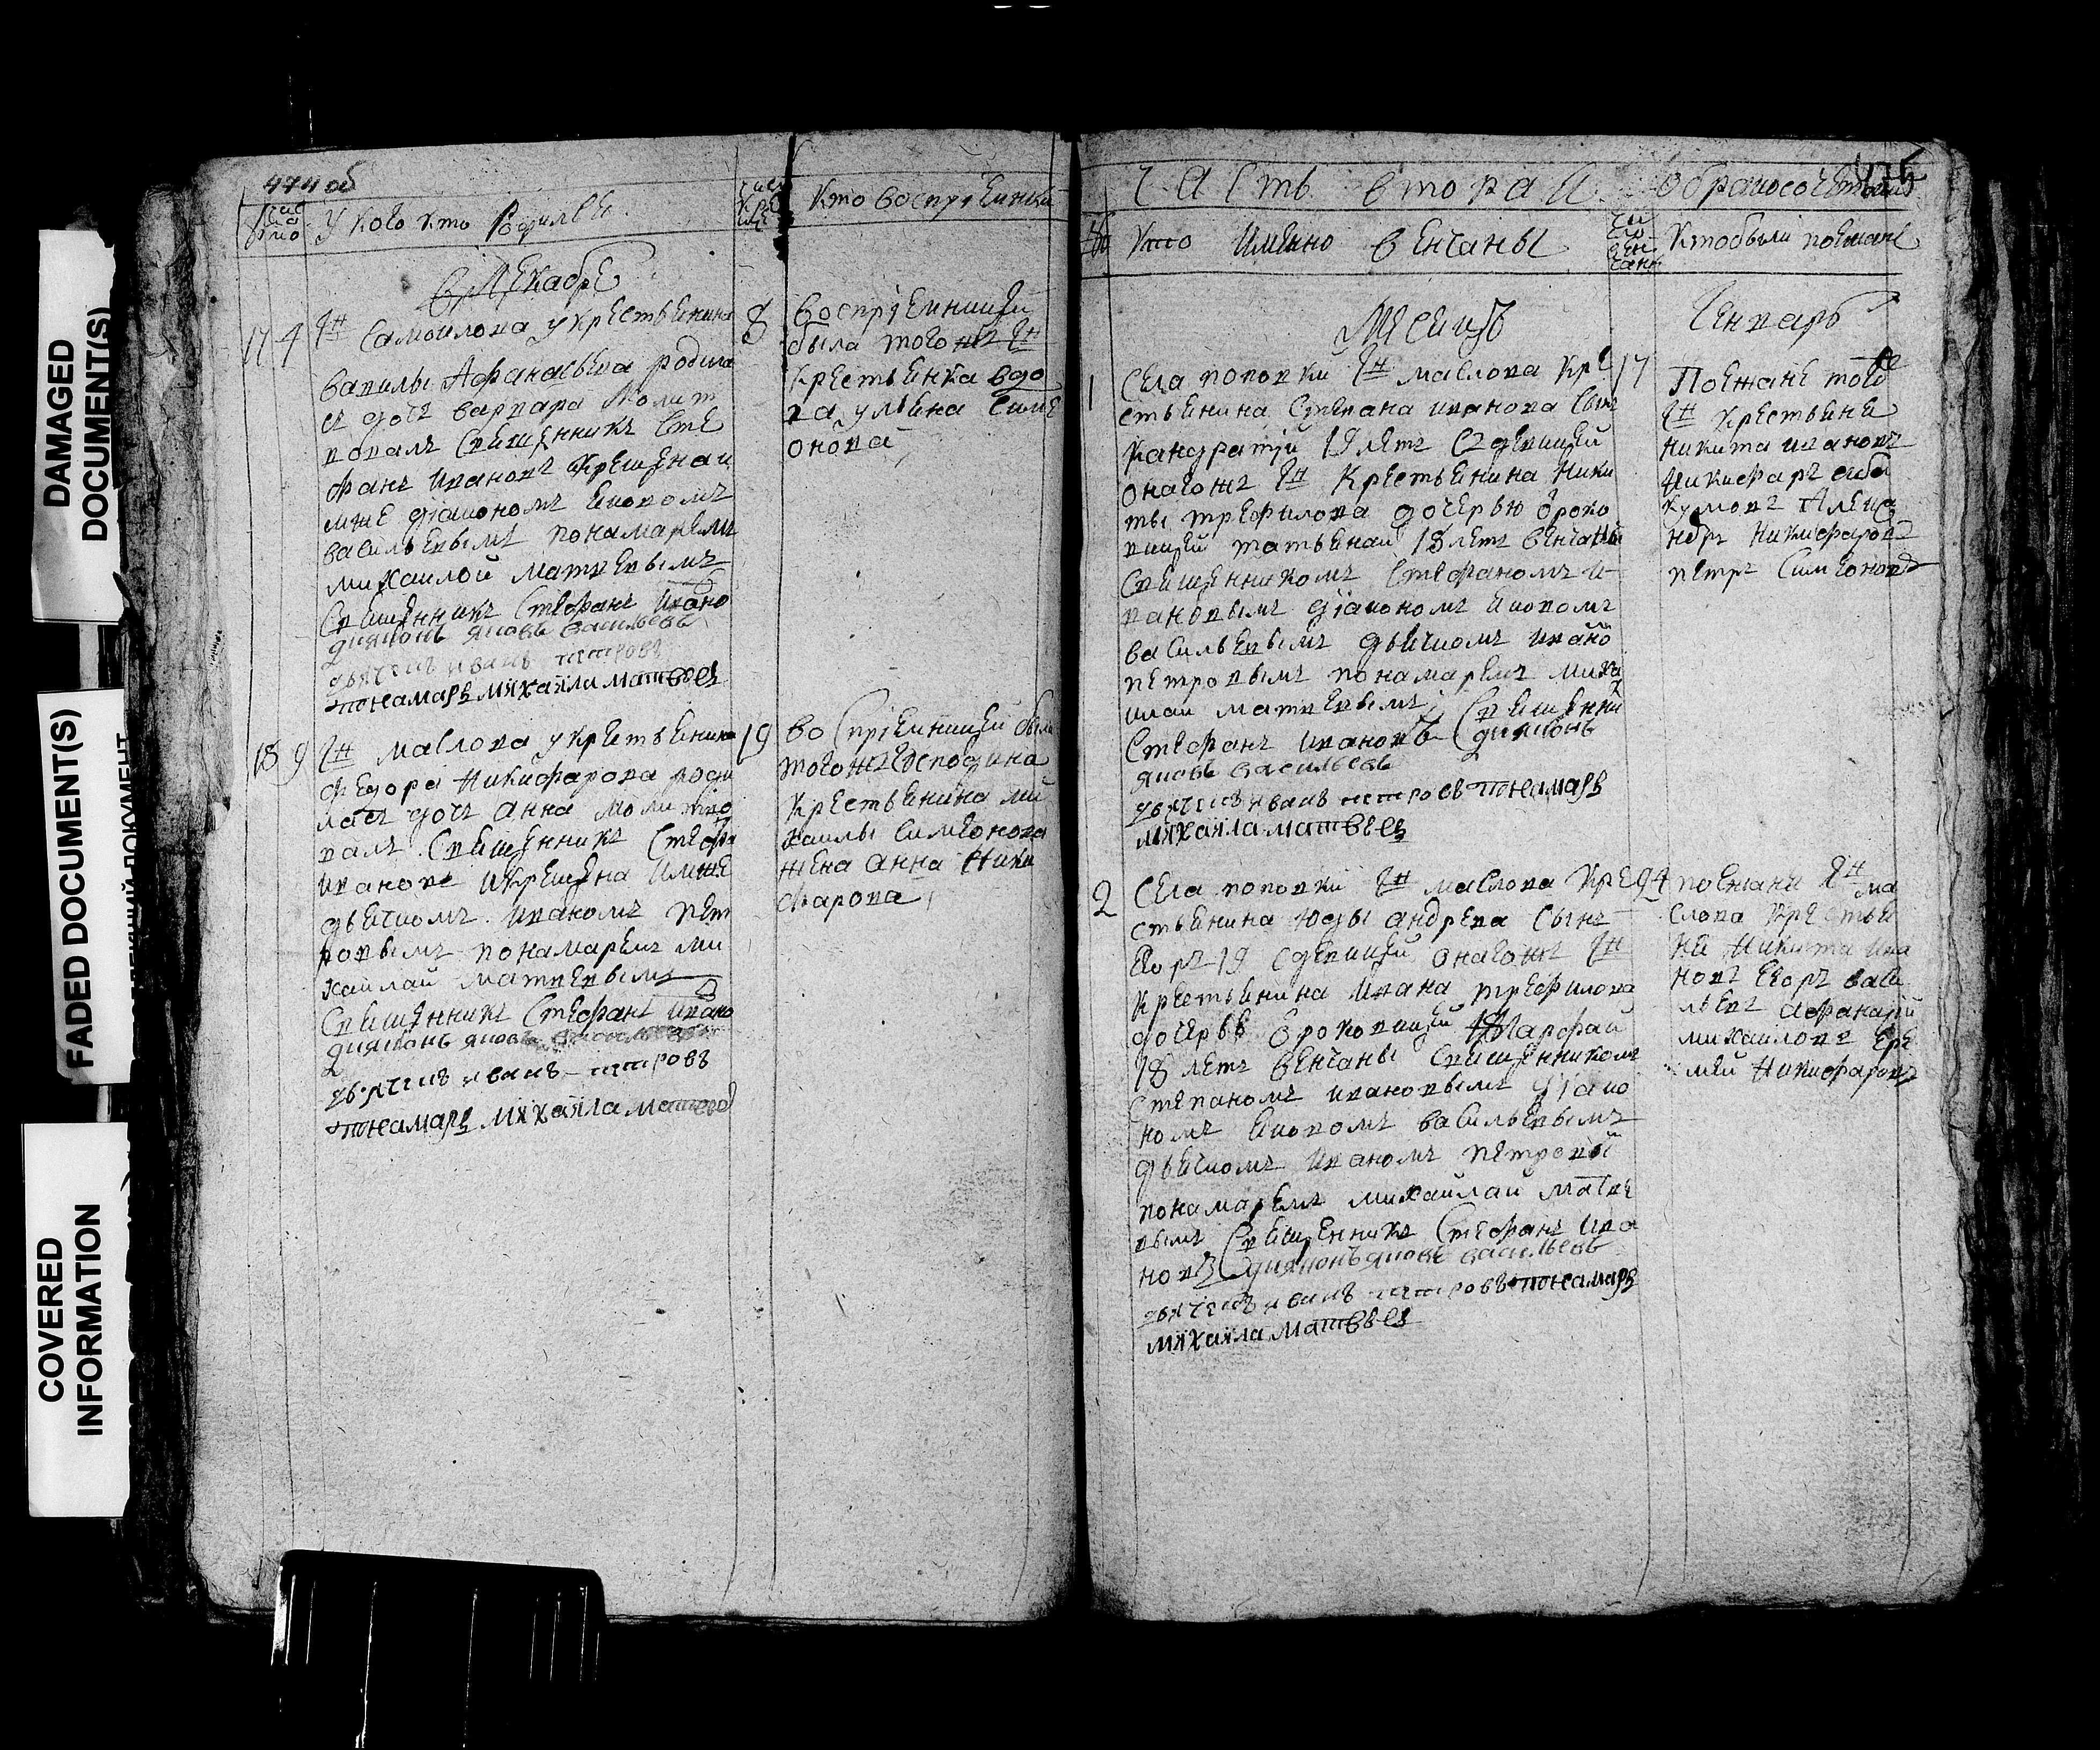 DAMAGED
DOCUMENT(S)
FADED DOCUMENT(S)
COVERED
INFORMATION
474 об
У кого кто родилъся
Кто восприемники
в Декабре
17 4
Гн Самоилова у крестьянина
вавилы Афанасьева родила
ся дочь варвара молит
вовалъ священникъ Сте
фанъ ивановъ крещена и
мже диаконом иаковомъ
васильевымъ понамаремъ
михаилой матвевымъ
Священникъ Стефанъ Ивано
диаконъ яковъ васильевъ
дьячекъ иванъ петровъ
понамарь михаила матвеев
8
восприемницей
была того ж Гн
крестьянка вдо
ва ульяна симе
онова
18 9
Гн маслова у крестьянина
федора Никифарова роди
лась дочь анна молитво
валъ Священникъ Стефа
ивановъ и крещена имже
дьячкомъ иваномъ пет
ровымъ понамаремъ ми
хаилай матвевымъ
Священникъ Стефанъ ивано
диаконъ яковъ васильевъ
дьячекъ иванъ петровъ
понамарь михаила матвеев
19
восприемницей была
того ж господина
крестьянина ми
хаилы симионова
жена анна Ники
фарова
Часть вторая о бракосочетавш
475
Кто имянно венчаны
Кто были поежане
Месяцъ
Генварь
1
Села поповки Гн маслова кре
стьянина Степана иванова сынъ
Кандратий 18 летъ с девицей
онагожъ Гн крестьянина Ники
ты трефилова дочерью отроко
вицей татьянай 18 летъ венчаны
Священникомъ Стефаномъ и
вановымъ диакономъ иаковомъ
васильевымъ дьячкомъ ивано
петровымъ понамаремъ миха
илай матвевымъ Священни
Стефанъ ивановъ диаконъ
яковъ васильевъ
дьячекъ иванъ петровъ понамарь
михаила матвеев
17
Поежане тогоже
Гн крестьяне
Никита ивановъ
Никифаръ аба
кумовъ Алекса
ндръ Никифаровъ
петръ Симеоновъ
2
Села поповки Гн маслова кре
стьянина юды андрева сынъ
Егоръ 19 с девицей онагож Гн
крестьянина ивана трефилова
дочерью отроковицей Марфай
18 летъ венчаны Священникомъ
Степаномъ ивановымъ диако
номъ иаковомъ васильевымъ
дьячкомъ иваномъ петровы
понамаремъ михайлай матве
вымъ Священникъ Стефанъ ива
новъ диаконъ яковъ васильевъ
дьячекъ иванъ петровъ понамарь
михаила матвеев
24
поежани Гн ма
слова крестья
не Никита ива
новъ Егоръ васи
льевъ афанасий
михаиловъ Ере
мей Никифаровъ